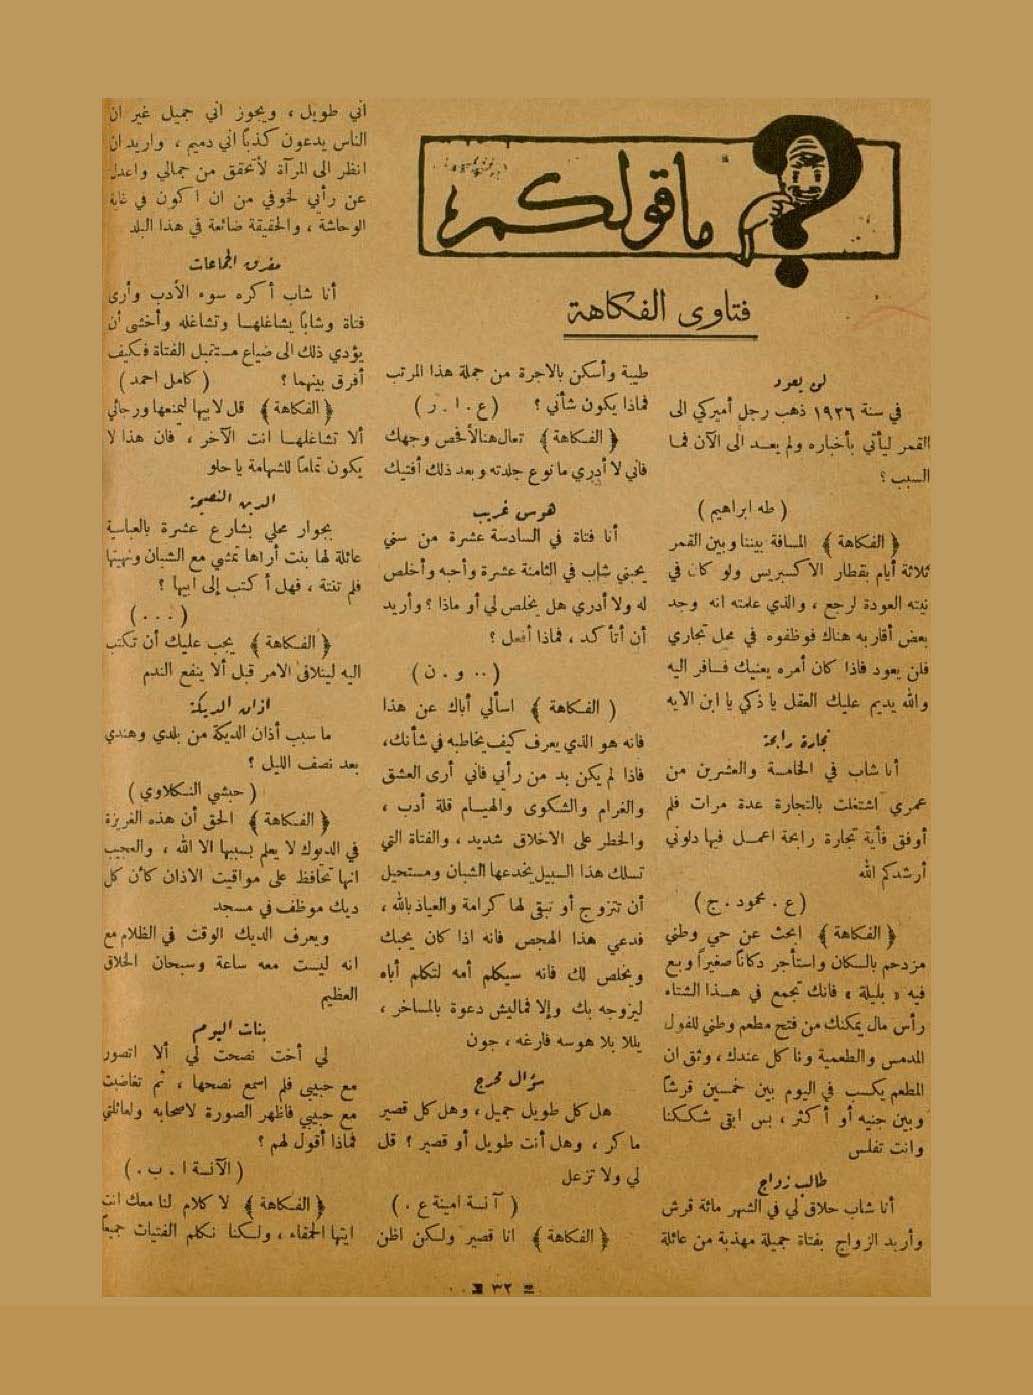 ماقولكم
؟
فتاوى الفكاهة
لن يعود
في سنة ١٩٢٦ ذهب رجل أميركي الى
القمر ليأتي بأخباره ولم يعد الى الآن فما
السبب ؟
( طه ابراهيم )
﴿ الفكاهة ﴾ المسافة بيننا وبين القمر
ثلاثة أيام بقطار الاكسبريس ولو كان في
نيته العودة لرجع ، والذي علمته انه وجد
بعض أقاربه هناك فوظفوه في محل تجاري
فلن يعود فاذا كان أمره يعنيك فسافر اليه
والله يديم عليك العقل يا ذكي يا ابن الايه
تجارة رابحة
أنا شاب في الخامسة والعشرين من
عمري اشتغلت بالتجارة عدة مرات فلم
أوفق فأية تجارة رابحة اعمل فيها دلوني
أرشدكم الله
( ع . محمود . ج )
﴿ الفكاهة ﴾ ابحث عن حي وطني
مزدحم بالسكان واستأجر دكاناً صغيراً وبع
فيه « بليلة » فانك تجمع في هذا الشتاء
رأس مال يمكنك من فتح مطعم وطني للفول
المدمس والطعمية وناكل عندك ، وثق ان
المطعم يكسب في اليوم بين خمسين قرشاً
وبين جنيه أو أكثر ، بس ابقى شككنا
وانت تفلس
طالب زواج
أنا شاب حلاق لي في الشهر مائة قرش
وأريد الزواج بفتاة جميلة مهذبة من عائلة
طيبة وأسكن بالاجرة من جملة هذا المرتب
فماذا يكون شأني ؟ ( ع . ا . ر )
﴿ الفكاهة ﴾ تعال هنا لأفحص وجهك
فاني لا أدري ما نوع جلدته وبعد ذلك أفتيك
هوس غريب
أنا فتاة في السادسة عشرة من سني
يحبني شاب في الثامنة عشرة وأحبه وأخلص
له ولا أدري هل يخلص لي أو ماذا ؟ وأريد
أن أتأكد ، فماذا أفعل ؟
( ٠٠ و . ن )
( الفكاهة ﴾ اسألي أباك عن هذا
فانه هو الذي يعرف كيف يخاطبه في شأنك،
فاذا لم يكن بد من رأيي فاني أرى العشق
والغرام والشكوى والهيام قلة أدب ،
والخطر على الاخلاق شديد ، والفتاة التي
تسلك هذا السبيل يخدعها الشبان ومستحيل
أن تتزوج أو تبقى لها كرامة والعياذ بالله ،
فدعي هذا الهجص فانه اذا كان يحبك
ويخلص لك فانه سيكلم أمه لتكلم أباه
ليزوجه بك وإلا فماليش دعوة بالمساخر ،
يللا بلا هوسه فارغه ، جون
سؤال محرج
هل كل طويل جميل ، وهل كل قصير
ماكر ، وهل أنت طويل أو قصير ؟ قل
لي ولا تزعل
( آنسة امينة ع . )
﴿ الفكاهة ﴾ انا قصير ولكن اظن
اني طويل ، ويجوز اني جميل غير ان
الناس يدعون كذباً اني دميم ، واريد ان
انظر الى المرآة لأتحقق من جمالي واعدل
عن رأيي لخوفي من ان اكون في غاية
الوحاشة ، والحقيقة ضائعة في هذا البلد
مفرق الجماعات
أنا شاب أكره سوء الأدب وأرى
فتاة وشاباً يشاغلها وتشاغله وأخشى أن
يؤدي ذلك الى ضياع مستقبل الفتاة فكيف
أفرق بينهما ؟ ( كامل احمد )
﴿ الفكاهة ﴾ قل لابيها ليمنعها ورجائي
ألا تشاغلها انت الآخر ، فان هذا لا
يكون تماماً للشهامة يا حلو
الدين النصيحة
بجوار محلي بشارع عشرة بالعباسية
عائلة لها بنت أراها تمشي مع الشبان ونهيتها
فلم تنته ، فهل أكتب إلى ابيها ؟
( . . . )
﴿ الفكاهة ﴾ يجب عليك أن تكتب
اليه ليتلافى الامر قبل ألا ينفع الندم
اذان الديكة
ما سبب أذان الديكة من بلدي وهندي
بعد نصف الليل ؟
( حبشي النكلاوي )
﴿ الفكاهة ﴾ الحق أن هذه الغريزة
في الديوك لا يعلم بسببها الا الله ، والعجيب
انها تحافظ على مواقيت الاذان كأن كل
ديك موظف في مسجد
ويعرف الديك الوقت في الظلام مع
انه ليست معه ساعة وسبحان الخلاق
العظيم
بنات اليوم
لي أخت نصحت لي ألا اتصور
مع حبيبي فلم اسمع نصحها ، ثم تغاضبت
مع حبيبي فاظهر الصورة لاصحابه ولعائلتي
فماذا أقول لهم ؟
( الآنسة ا . ب . )
﴿ الفكاهة ﴾ لا كلام لنا معك انت
ايتها الحمقاء ، ولكنا نكلم الفتيات جميعاً
٣٢